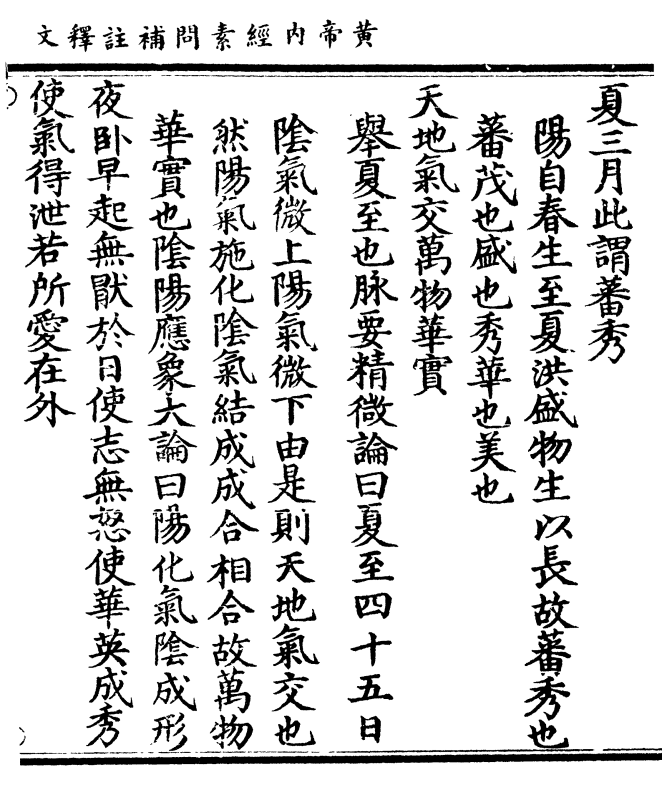 黃帝內經素問補註釋文
夏三月此謂蕃秀
陽自春生至夏洪盛物生以長故蕃秀也
蕃茂也盛也秀華也美也
天地氣交萬物華實
舉夏至也脉要精微論曰夏至四十五日
陰氣微上陽氣微下由是則天地氣交也
然陽氣施化陰氣結成成合相合故萬物
華實也陰陽應象大論曰陽化氣陰成形
夜卧早起無厭於日使志無怒使華英成秀
使氣得泄若所愛在外